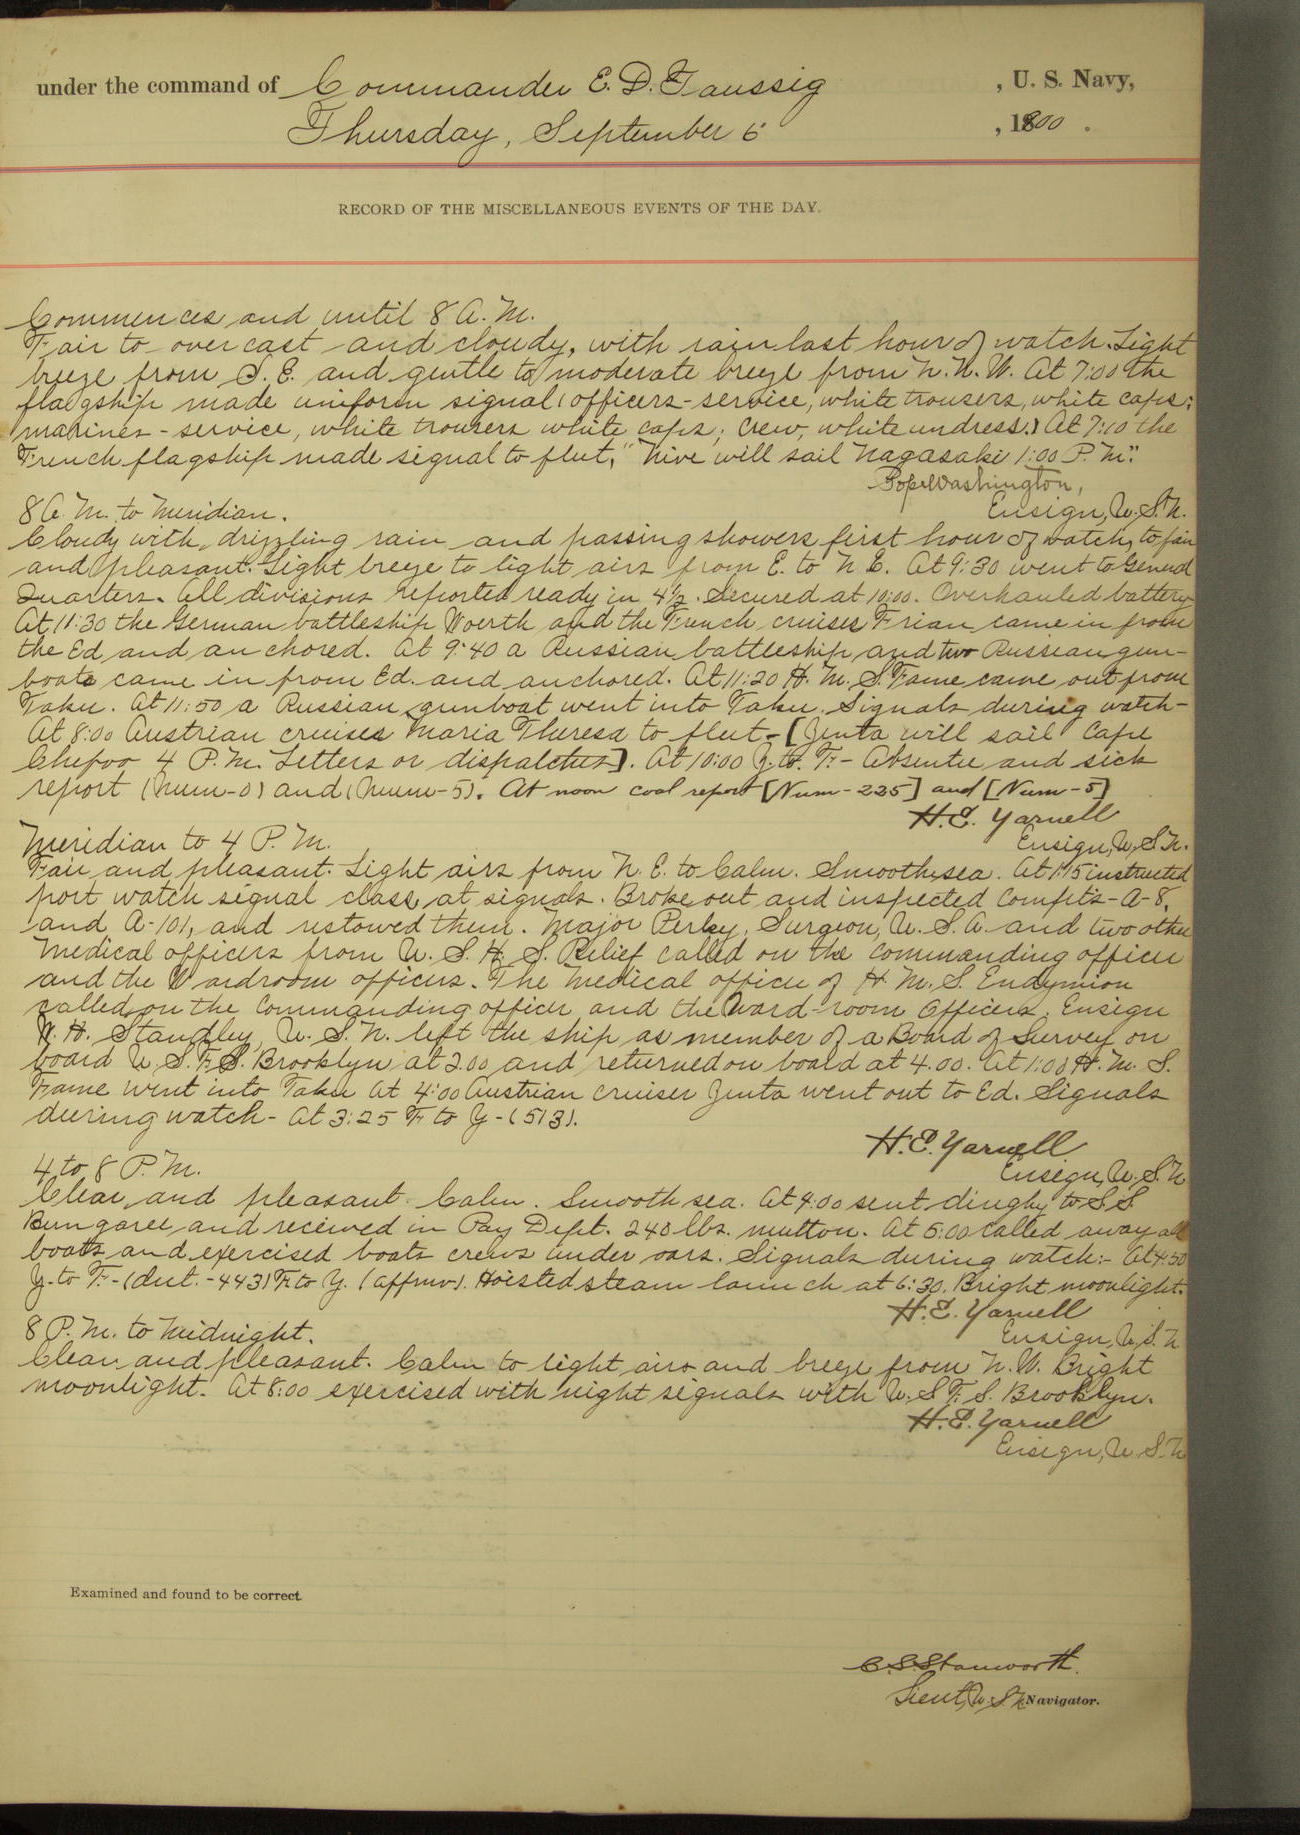 under the command of Commander E. D. Taussig , U. S. Navy,
Thursday, September 6 , 1900 .
RECORD OF THE MISCELLANEOUS EVENTS OF THE DAY.
Commences and until 8 A. M.
Fair to overcast and cloudy, with rain last hour of watch. Light
breeze from S. E. and gentle to moderate breeze from N. N. W. At 7:00 the
flagship made uniform signal (officers-service, white trousers, white caps;
marines - service, white trousers white caps; crew, white undress.) At 7:10 the
French flagship made signal to fleet, "Nive will sail Nagasaki 1:00 P. M."
Pope Washington,
Ensign, U. S. N.
8 A. M. to Meridian.
Cloudy with drizzling rain and passing showers first hour of watch, to fair
and pleasant. Light breeze to light airs from E. to N. E. At 9:30 went to General
Quarters. All divisions reported ready in 4½. Secured at 10:00. Overhauled battery
At 11:30 the German battleship Woerth and the French cruiser Frian came in from
the Ed and anchored. At 9:40 a Russian battleship and two Russian gun-
boats came in from Ed. and anchored. At 11:20 H. M. S. Fame came out from
Taku. At 11:50 a Russian gunboat went into Taku. Signals during watch-
At 8:00 Austrian cruiser Maria Theresa to fleet-[Zenta will sail Cape
Chefoo 4 P. M. Letters or dispatches]. At 10:00 Y. to F.- Absentee and sick
report (Num-0) and (Num-5). At noon coal report [Num-225] and [Num-5]
H. E. Yarnell
Ensign, U. S. N.
Meridian to 4 P. M.
Fair and pleasant. Light airs from N. E. to Calm. Smooth sea. At 1:15 instructed
port watch signal class at signals. Broke out and inspected Compt's-A-8,
and A-101, and restowed them. Major Perley, Surgeon, U. S. A. and two other
Medical officers from U. S. H. S. Relief called on the Commanding officer
and the Wardroom officers. The Medical officer of H. M. S. Endymion
called on the Commanding officer and the Ward-room Officers. Ensign
W. H. Standley, U. S. N. left the ship as member of a Board of Survey on
board U. S. F. S. Brooklyn at 2.00 and returned on board at 4.00. At 1:00 H. M. S.
Fame went into Taku At 4:00 Austrian cruiser Zenta went out to Ed. Signals
during watch- At 3:25 F to Y-(513).
H. E. Yarnell
Ensign, U. S. N
4 to 8 P. M.
Clear and pleasant. Calm. Smooth sea. At 4:00 sent dinghy to S. S.
Bungaree and received in Pay Dept. 240 lbs. mutton. At 5:00 called away all
boats and exercised boats crews under oars. Signals during watch:- At 4:50
Y. to F.-(dict.-443) F. to Y. (affmv). Hoisted steam launch at 6:30. Bright moonlight.
H. E. Yarnell
Ensign, U. S. N
8 P. M. to Midnight.
Clear and pleasant. Calm to light airs and breeze from N. W. Bright
moonlight. At 8:00 exercised with night signals with U. S. F. S. Brooklyn.
H. E. Yarnell
Ensign, U. S. N
Examined and found to be correct.
C. S. Stanworth.
Lieut, U. S. N. Navigator.